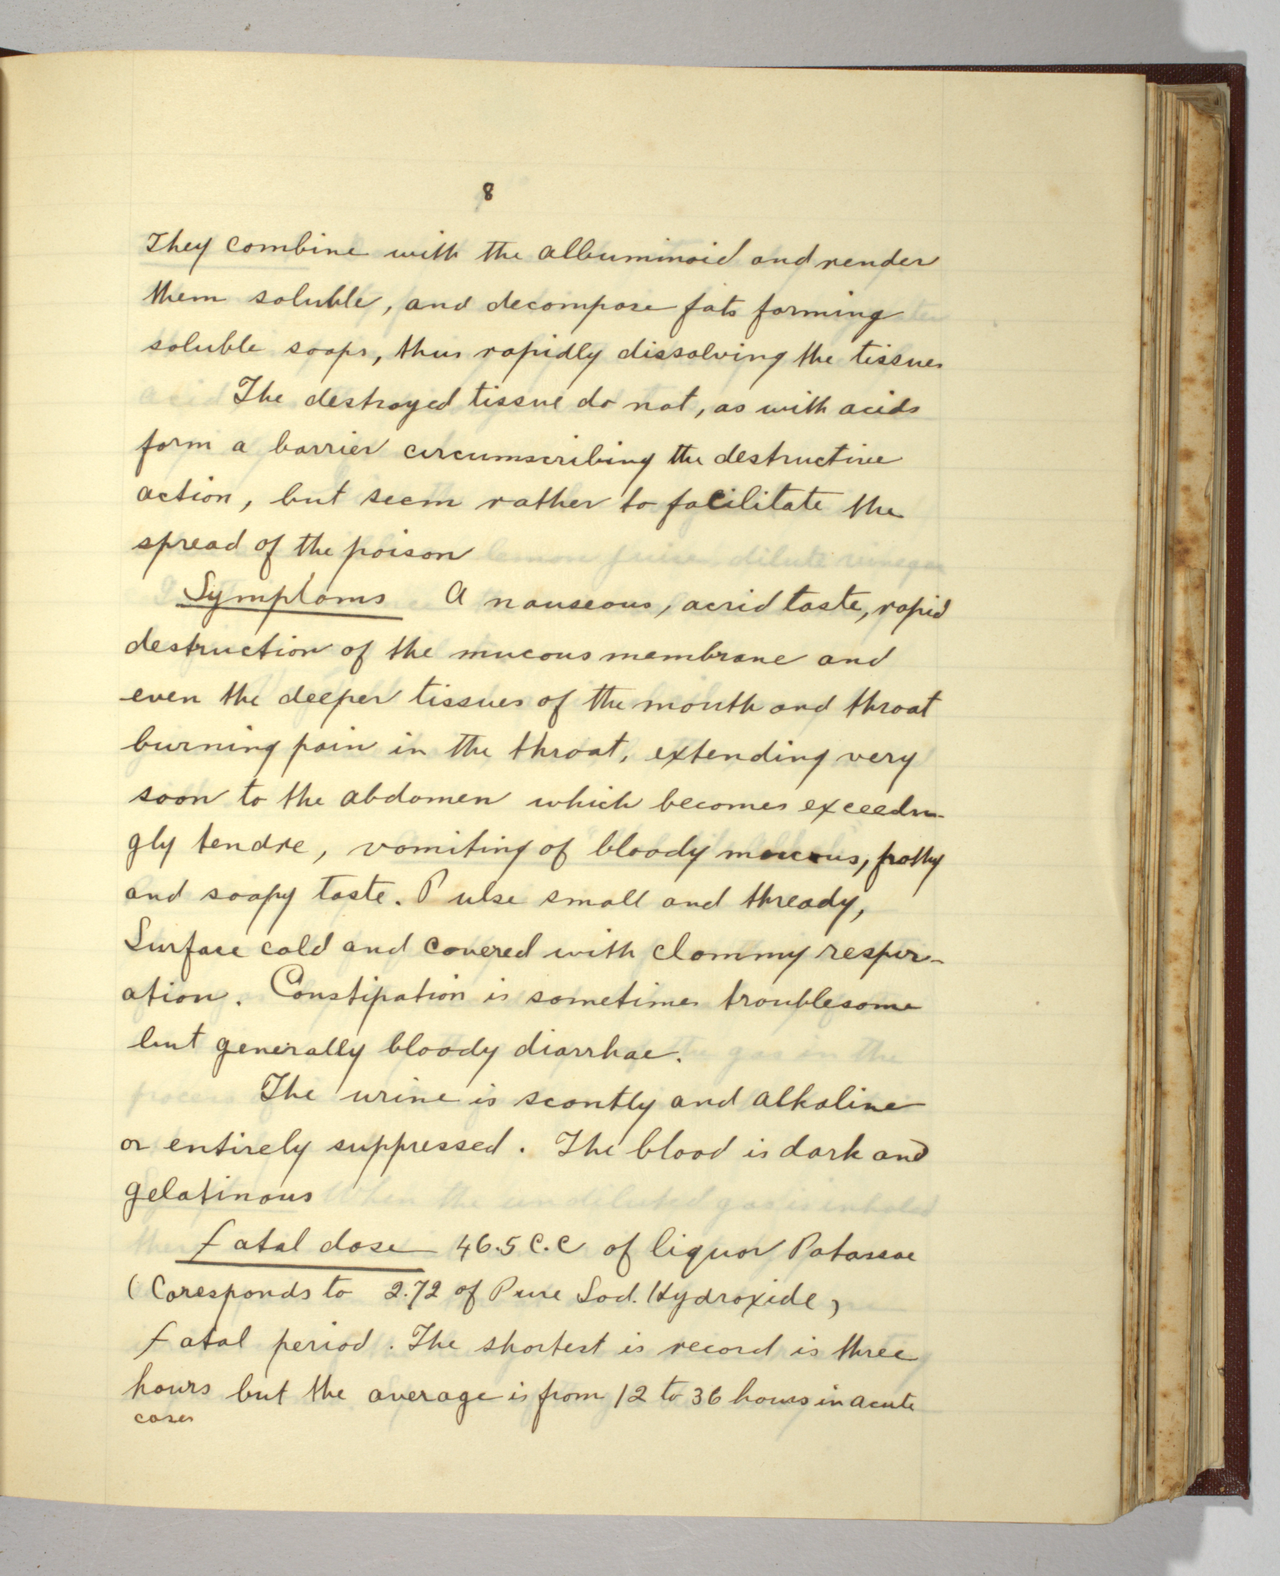 8
They combine with the albuminoid and render
them soluble, and decompose fats forming
soluble soaps, thus rapidly dissolving the tissues
The destroyed tissue do not, as with acids
form a barrier circumscribing the destructive
action, but seem rather to facilitate the
spread of the poison
Symptoms A nauseous, acrid taste, rapid
destruction of the mucous membrane and
even the deeper tissues of the mouth and throat
burning pain in the throat, extending very
soon to the abdomen which becomes exceedin-
gly tendre, vomiting of bloody mucous, frothy
and soapy taste. Pulse small and thready,
Surface cold and covered with clammy respir-
ation. Constipation is sometimes troublesome
but generally bloody diarrhae.
The urine is scantly and alkaline
or entirely suppressed. The blood is dark and
gelatinous
fatal dose 46.5 C.C of liquor Potassae
(Coresponds to 2.72 of Pure Sod. Hydroxide,
fatal period. The shortest is record is three
hours but the average is from 12 to 36 hours in acute
cases